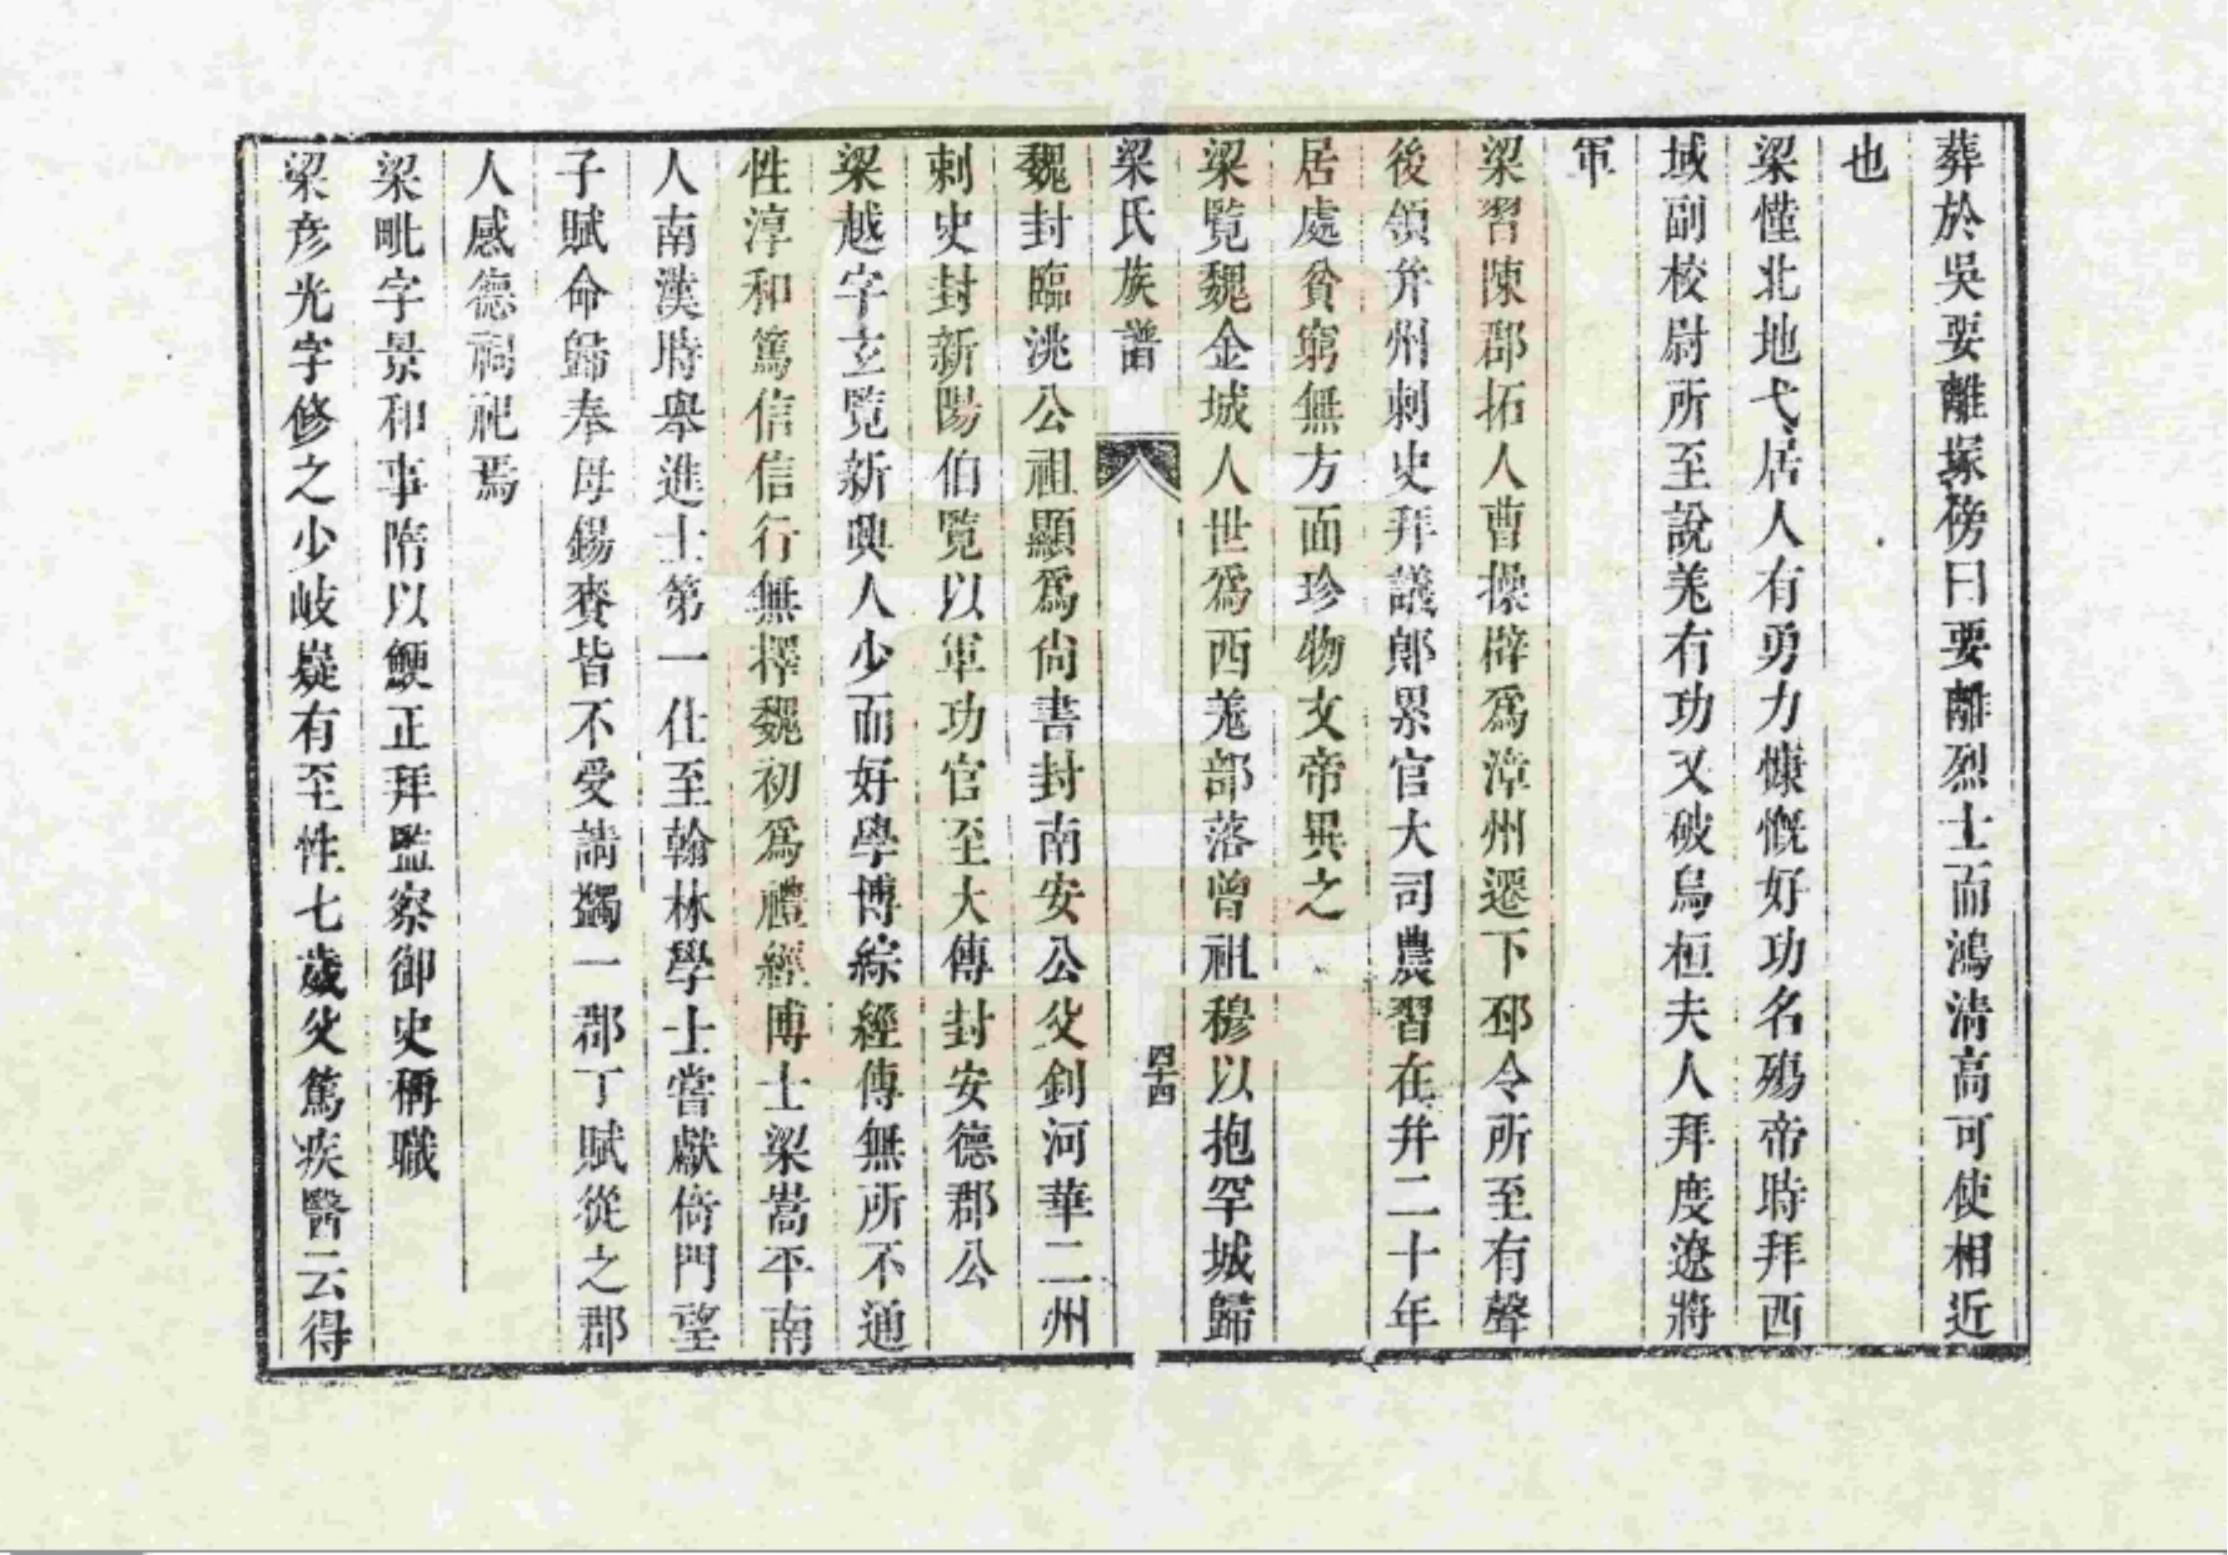 葬於吳要離塚傍曰要離烈士而鴻淸高可使相近
也
梁慬北地弋居人有勇力慷慨好功名殤帝時拜西
域副校尉所至說羌有功又破烏桓夫人拜度遼將
軍
梁習陳郡拓人曹操辟爲漳州遷下邳令所至有聲
後領并州刺史拜議郞累官大司農習在并二十年
居處貧窮無方面珍物文帝異之
梁覽魏金城人世爲西羌部落曾祖穆以抱罕城歸
梁氏族譜
四十四
魏封臨洮公祖顯爲尙書封南安公父釗河華二州
刺史封新陽伯覽以軍功官至大傳封安德郡公
梁越字玄覽新興人少而好學博綜經傳無所不通
性淳和篤信信行無擇魏初爲禮經博士梁嵩平南
人南漢時舉進士第一仕至翰林學士嘗獻倚門望
子賦命歸奉母錫賚皆不受請蠲一郡丁賦從之郡
人感德祠祀焉
梁毗字景和事隋以鯁正拜監察御史稱職
梁彥光字修之少岐嶷有至性七歲父篤疾醫云得